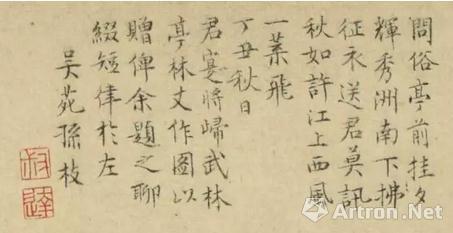 問俗亭前挂夕
輝秀洲南下拂
征衣送君莫訊
秋如許江上西風
一葉飛
丁丑秋日
君宴將歸武林
亭林丈作圖以
贈俾余題之聊
綴短律於左
吳苑孫枝
Artron.Net